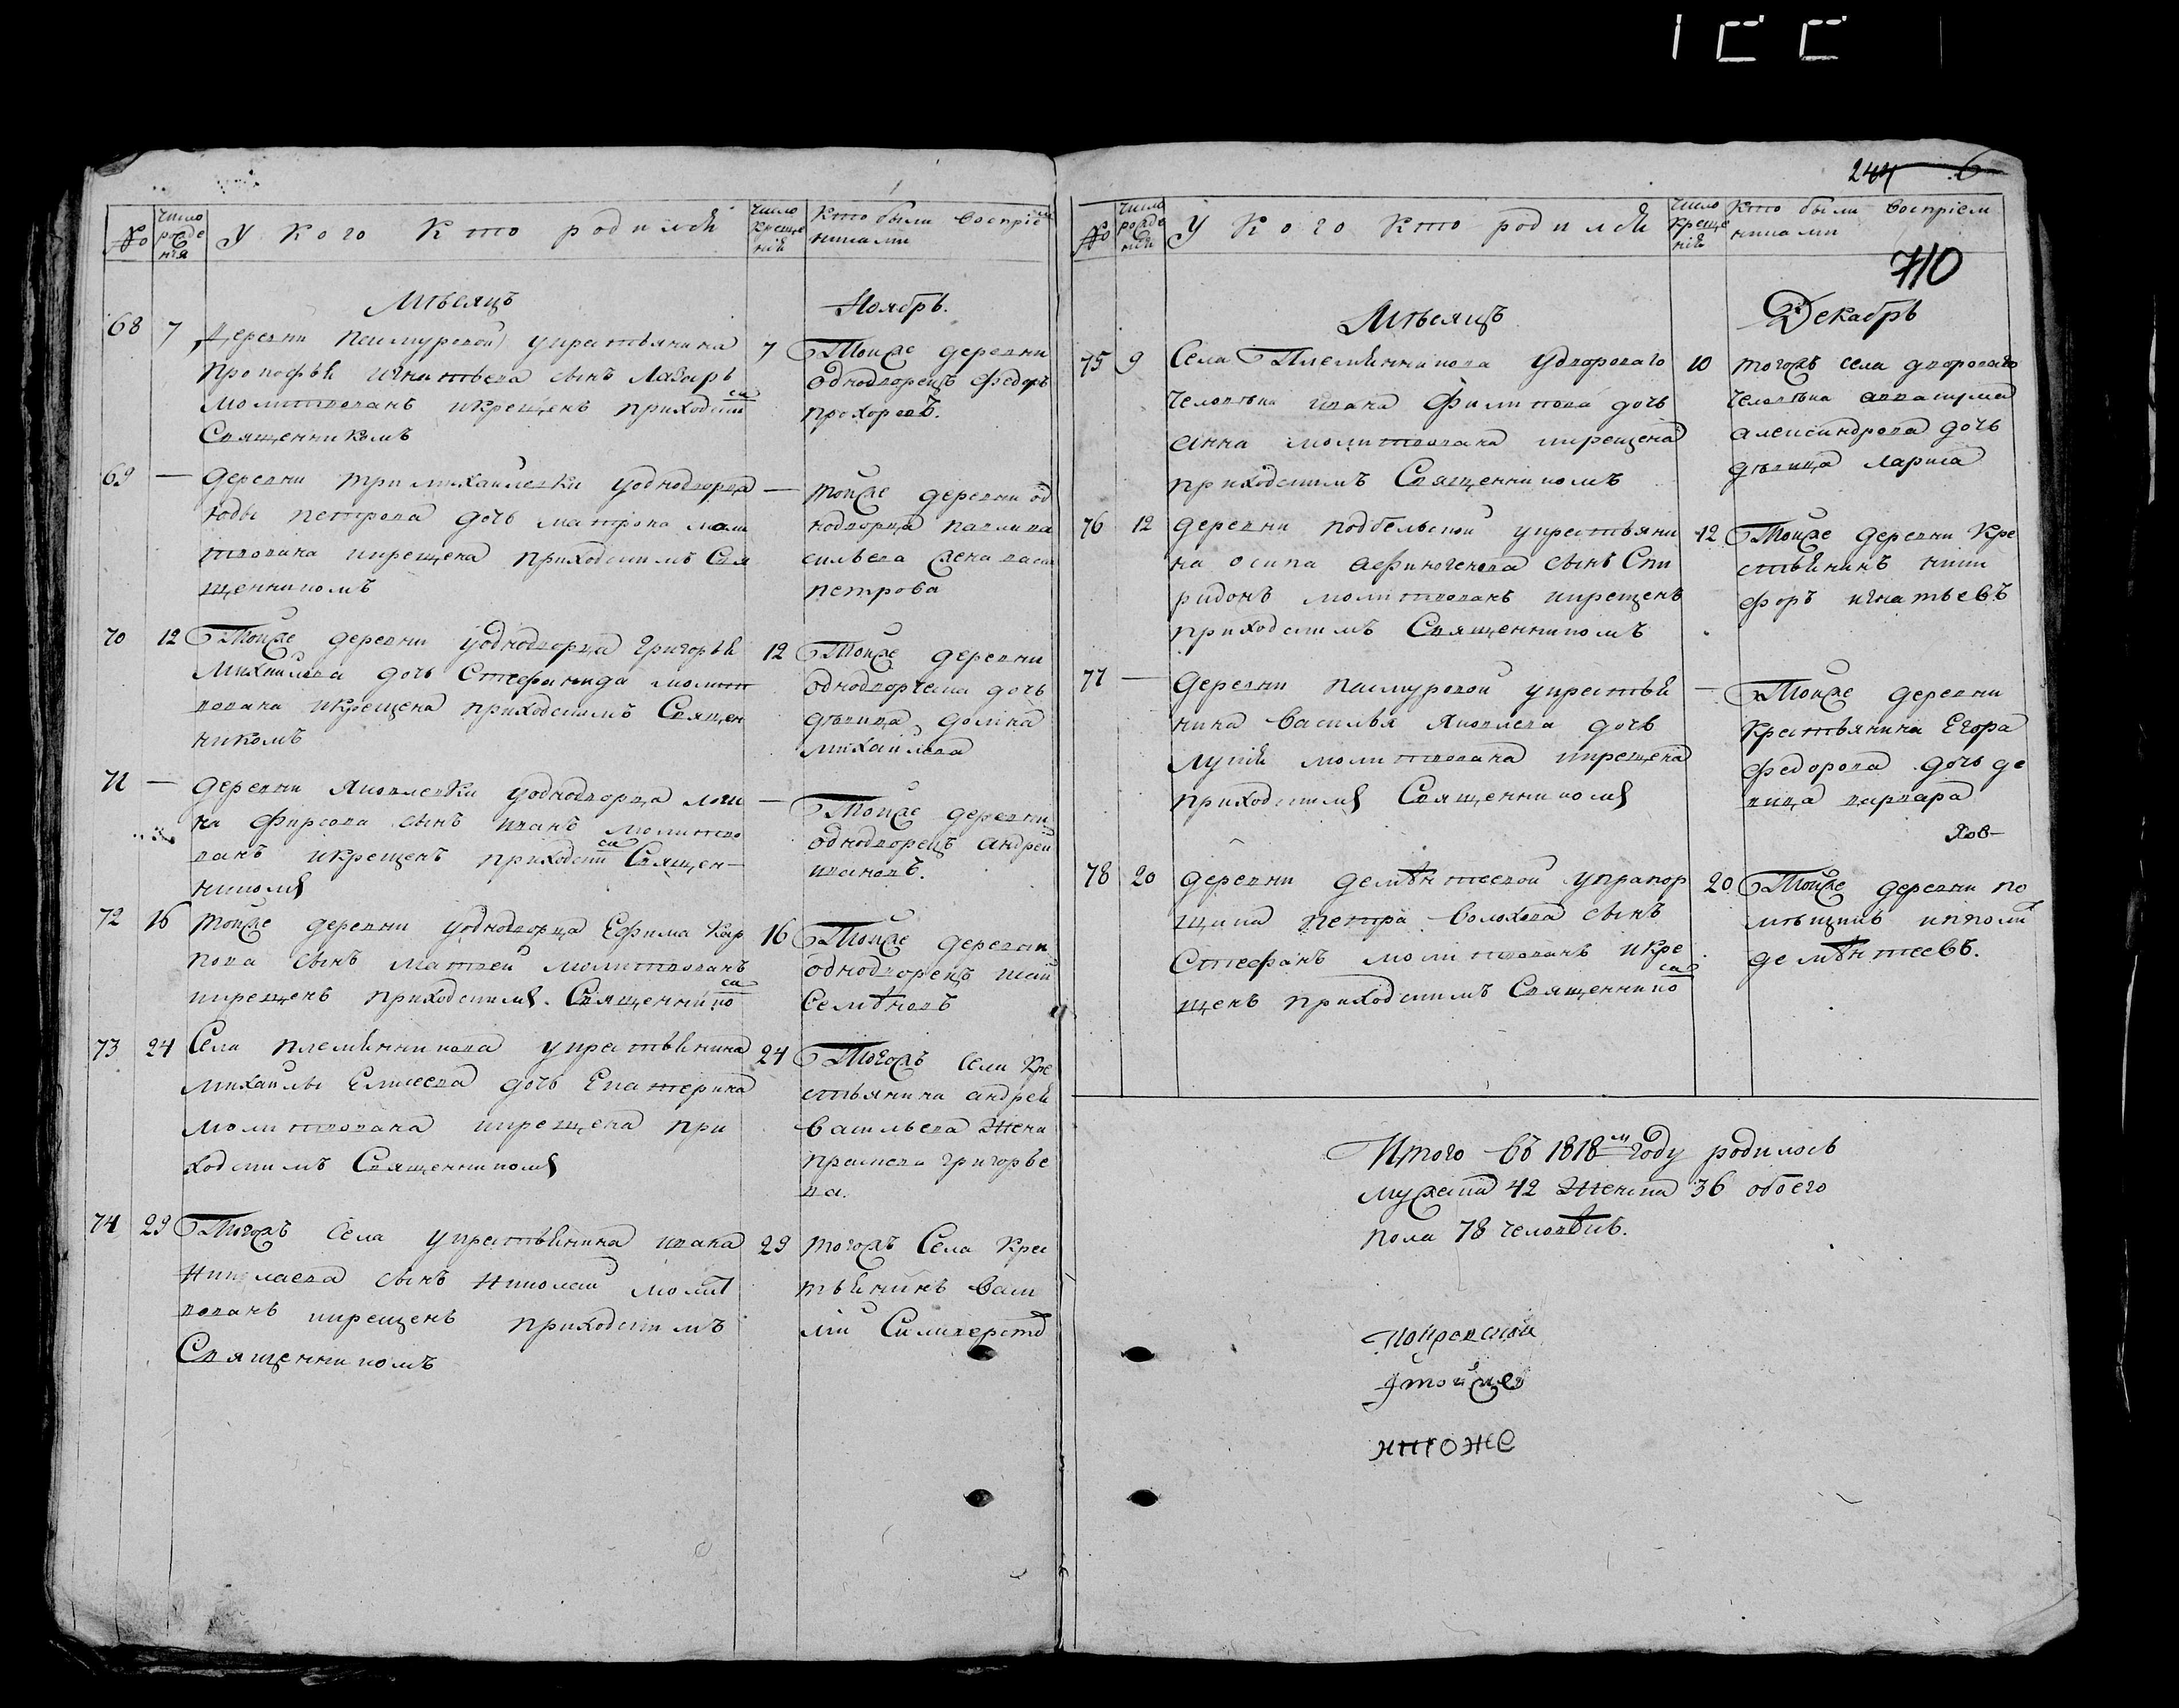 №
Число рожде нія
У Кого Кто родился
Число креще нія
Кто были воспріем никами
Мѣсяцъ Ноябрь.
68 7 Деревни укрестьянина
Прокофья Игнатьева сынъ Лазарь
молитвованъ икрещенъ приходски
Священникомъ
7 Тойже деревни
однодворецъ Федоръ
прохоровъ.
69 — деревни уоднодворца
петрова дочь матрона моли
твована икрещена приходскимъ Свя
щенникомъ
— тойже деревни од
нодворца
жена
петрова
70 12 Тойже деревни уоднодворца григорья
Михаилова дочь Стефанида молит
вована икрещена приходскимъ Священ
никомъ
12 Тойже деревни
дочь
дѣвица домна
михаилова
71 — деревни Яковлевки уоднодворца логи
на фирсова сынъ иванъ молитво
ванъ икрещенъ приходски Священ-
никомъ
— Тойже деревни
однодворецъ андрей
ивановъ.
72 16 тойже деревни уоднодворца Ефима Кар
пова сынъ матвей молитвованъ
икрещенъ приходскимъ Священнико
16 Тойже деревни
однодворецъ
Семѣновъ
73 24 Села племянникова укрестьянина
михаилы Елисеева дочь Екатерина
молитвована икрещена при
ходскимъ Священникомъ
24 Тогожъ села Кре
стьянина андрея
васильева жена
григорье
ва.
74 29 Тогожъ села укрестьянина ивана
Николаева сынъ Николай молит
вованъ икрещенъ приходскимъ
Священникомъ
29 тогожъ Села Крес
тьянинъ васи
лій
244 6
710
№
Число рожде нія
У Кого Кто родился
Число креще нія
Кто были воспріем никами
Мѣсяцъ Декабрь
75 9 Села Племянникова удворового
человѣка ивана Филипова дочь
анна молитвована икрещена
приходскимъ Священникомъ
10 тогожъ села дворового
человѣка
александрова дочь
дѣвица лариса
76 12 деревни подбельской укрестьяни
на осипа афиногенова сынъ Спи
ридонъ молитвованъ икрещенъ
приходскимъ Священникомъ
12 Тойже деревни Кре
стьянинъ ники
форъ игнатьевъ
77 — деревни укрестья
нина василья Яковлева дочь
лукія молитвована икрещена
приходскимъ Священникомъ
— Тойже деревни
Крестьянина Егора
федорова дочь де
вица варвара
78 20 деревни демѣнтьевой упрапор
щика петра волохова сынъ
Стефанъ молитвованъ икре
щенъ приходскимъ Священнико
20 Тойже деревни по
мѣщикъ
демѣнтьевъ.
Итого въ 1818м году родилось
мужеска 42 женска 36 обоего
пола 78 человѣкъ.